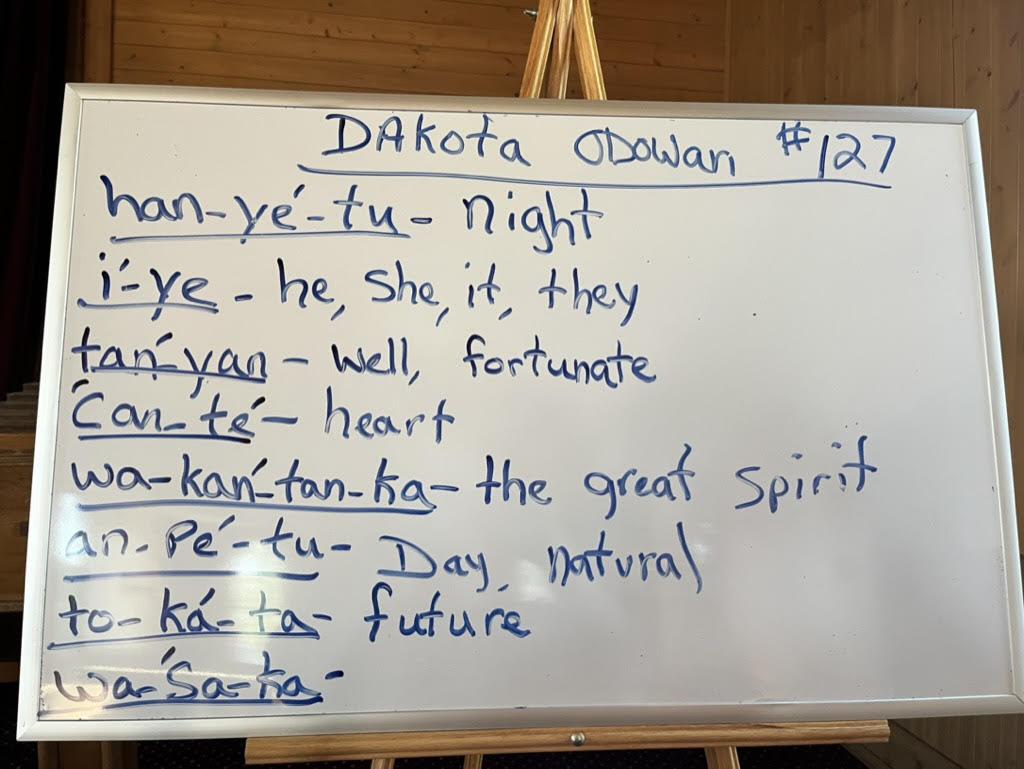 DAKota ODOWAN #127
han-yé-tu- night
í-ye - he, she, it, they
tań-yan - well, fortunate
Can-té - heart
wa-kań-tan-ka- the great spirit
an-pé-tu- Day, natural
to-ká-ta- future
wa-śa-ka-